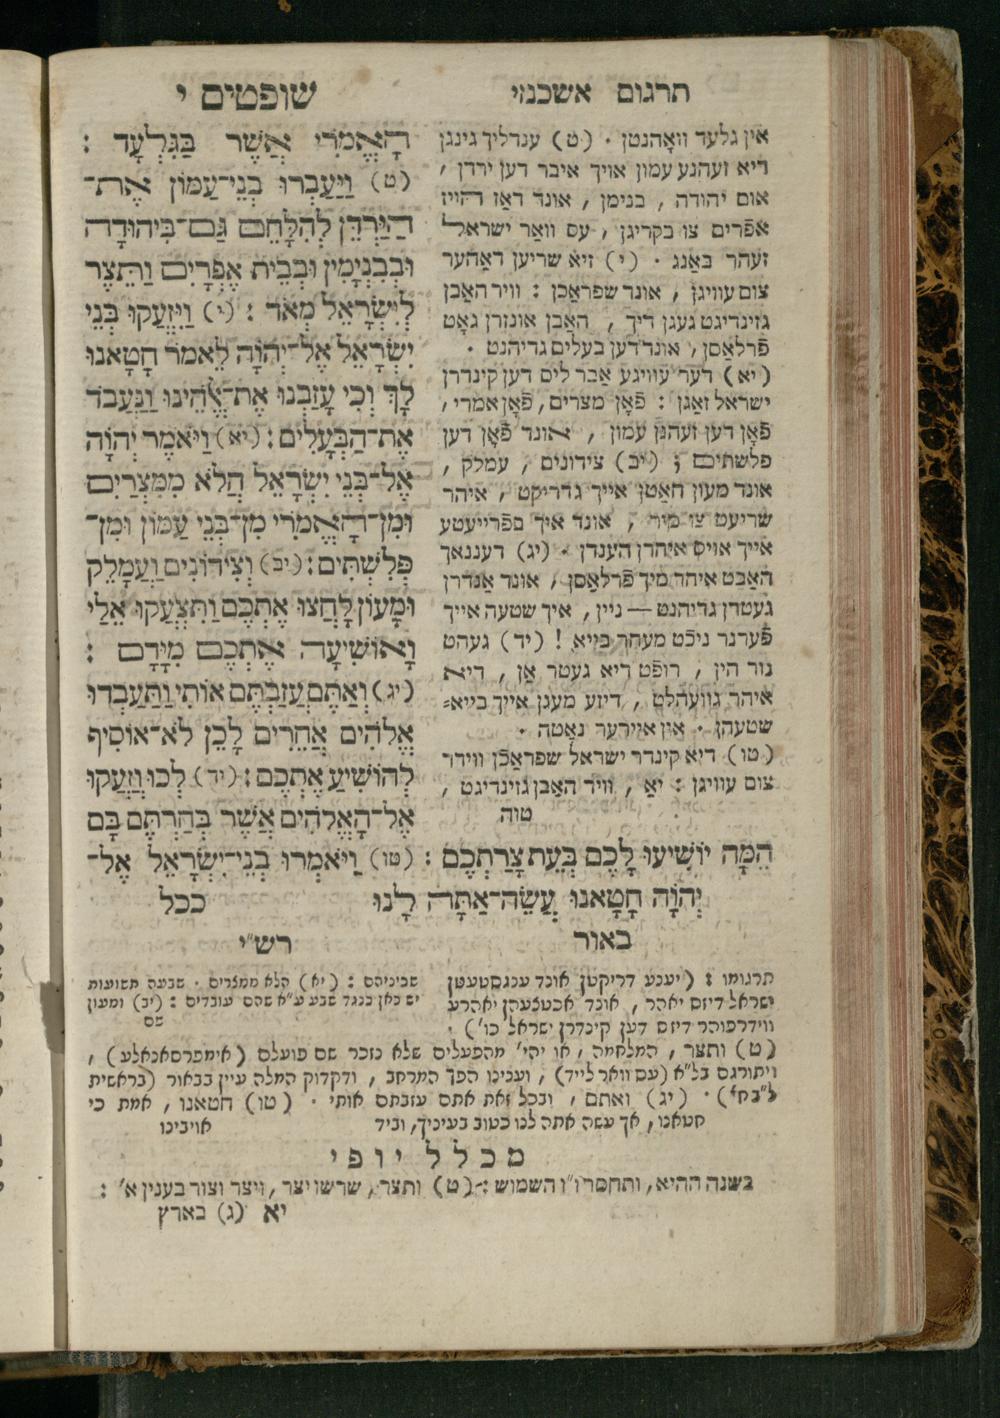 תרגום אשכנזי
אין גלעד וואָהנטן . (ט) ענדליך גינגן
דיא זעהנע עמון אויך איבר דען ירדן ,
אום יהודה , בנימן , אונד דאז הויז
אפרים צו בקריגן , עס וואר ישראל
זעהר באַנג . (י) זיא שריען דאהער
צום עוויגן , אונד שפראכן : וויר האבן
גזינדיגט געגן דיך , האבן אונזרן גאט
פֿרלאסן , אונד דען בעלים גדיהנט .
(יא) דער עוויגע אבר ליס דען קינדרן
ישראל זאגן : פֿאָן מצרים , פֿאָן אמרי ,
פֿאָן דען זעהנן עמון , אונד פֿאָן דען
פלשתים ; (יב) צידונים , עמלק ,
אונד מעון האטן אייך גדריקט , איהר
שריעט צו מיר , אונד איך בפֿרייעטע
אייך אויס איהרן הענדן . (יג) דעננאך
האבט איהר מיך פֿרלאסן , אונד אנדרן
געטרן גדיהנט — ניין , איך שטעה אייך
פֿערנר ניכֿט מעהר בייא ! (יד) געהט
נור הין , רופֿט דיא געטר אן , דיא
איהר גוועהלט , דיזע מעגן אייך בייא=
שטעהן . אין אייערער נאטה .
(טו) דיא קינדר ישראל שפראכֿן ווידר
צום עוויגן : יאַ , וויר האבן גזינדיגט ,
טוה
שופטים י
הָאֱמֹרִי אֲשֶׁר בַּגִּלְעָד :
(ט) וַיַּעַבְרוּ בְנֵי־עַמּוֹן אֶת־
הַיַּרְדֵּן לְהִלָּחֵם גַּם־בִּיהוּדָה
וּבְבִנְיָמִין וּבְבֵית אֶפְרָיִם וַתֵּצֶר
לְיִשְׂרָאֵל מְאֹד : (י) וַיִּזְעֲקוּ בְּנֵי
יִשְׂרָאֵל אֶל־יְהוָֹה לֵאמֹר חָטָאנוּ
לָךְ וְכִי עָזַבְנוּ אֶת־אֱלֹהֵינוּ וַנַּעֲבֹד
אֶת־הַבְּעָלִים : (יא) וַיֹּאמֶר יְהוָֹה
אֶל־בְּנֵי יִשְׂרָאֵל הֲלֹא מִמִּצְרַיִם
וּמִן־הָאֱמֹרִי מִן־בְּנֵי עַמּוֹן וּמִן־
פְּלִשְׁתִּים : (יב) וְצִידוֹנִים וַעֲמָלֵק
וּמָעוֹן לָחֲצוּ אֶתְכֶם וַתִּצְעֲקוּ אֵלַי
וָאוֹשִׁיעָה אֶתְכֶם מִיָּדָם :
(יג) וְאַתֶּם עֲזַבְתֶּם אוֹתִי וַתַּעַבְדוּ
אֱלֹהִים אֲחֵרִים לָכֵן לֹא־אוֹסִיף
לְהוֹשִׁיעַ אֶתְכֶם : (יד) לְכוּ וְזַעֲקוּ
אֶל־הָאֱלֹהִים אֲשֶׁר בְּחַרְתֶּם בָּם
הֵמָּה יוֹשִׁיעוּ לָכֶם בְּעֵת צָרַתְכֶם : (טו) וַיֹּאמְרוּ בְנֵי־יִשְׂרָאֵל אֶל־
יְהוָֹה חָטָאנוּ עֲשֵׂה־אַתָּה לָנוּ ככל
באור
תרגומו : (יענע דריקטן אונד ענגסטעטן
ישראל דיזס יאהר , אונד אכטצעהן יאהרע
ווידרפוהר דיזס דען קינדרן ישראל כו') .
רש"י
שביניהם : (יא) הלא ממצרים . שבעה תשועות
יש כאן כנגד שבע ע"א שהם עובדים : (יב) ומעון
שם
(ט) ותצר , המלחמה , או יהי' מהפעלים שלא נזכר שם פועלם (אימפרסאנאלע) ,
ויתורגם בל"א (עס וואר לייד) , וענינו הפך המרחב , ודקדוק המלה עיין בבאור (בראשית
(יג) ואתם , ובכל זאת אתם עזבתם אותי . (טו) חטאנו , אמת כי
חטאנו , אך עשה אתה לנו כטוב בעיניך , וביד אויבינו
מכלל יופי
בשנה ההיא , ותחסר וי"ו השמוש : (ט) ותצר , שרשו יצר , ויצר וצור בענין א' :
יא (ג) בארץ